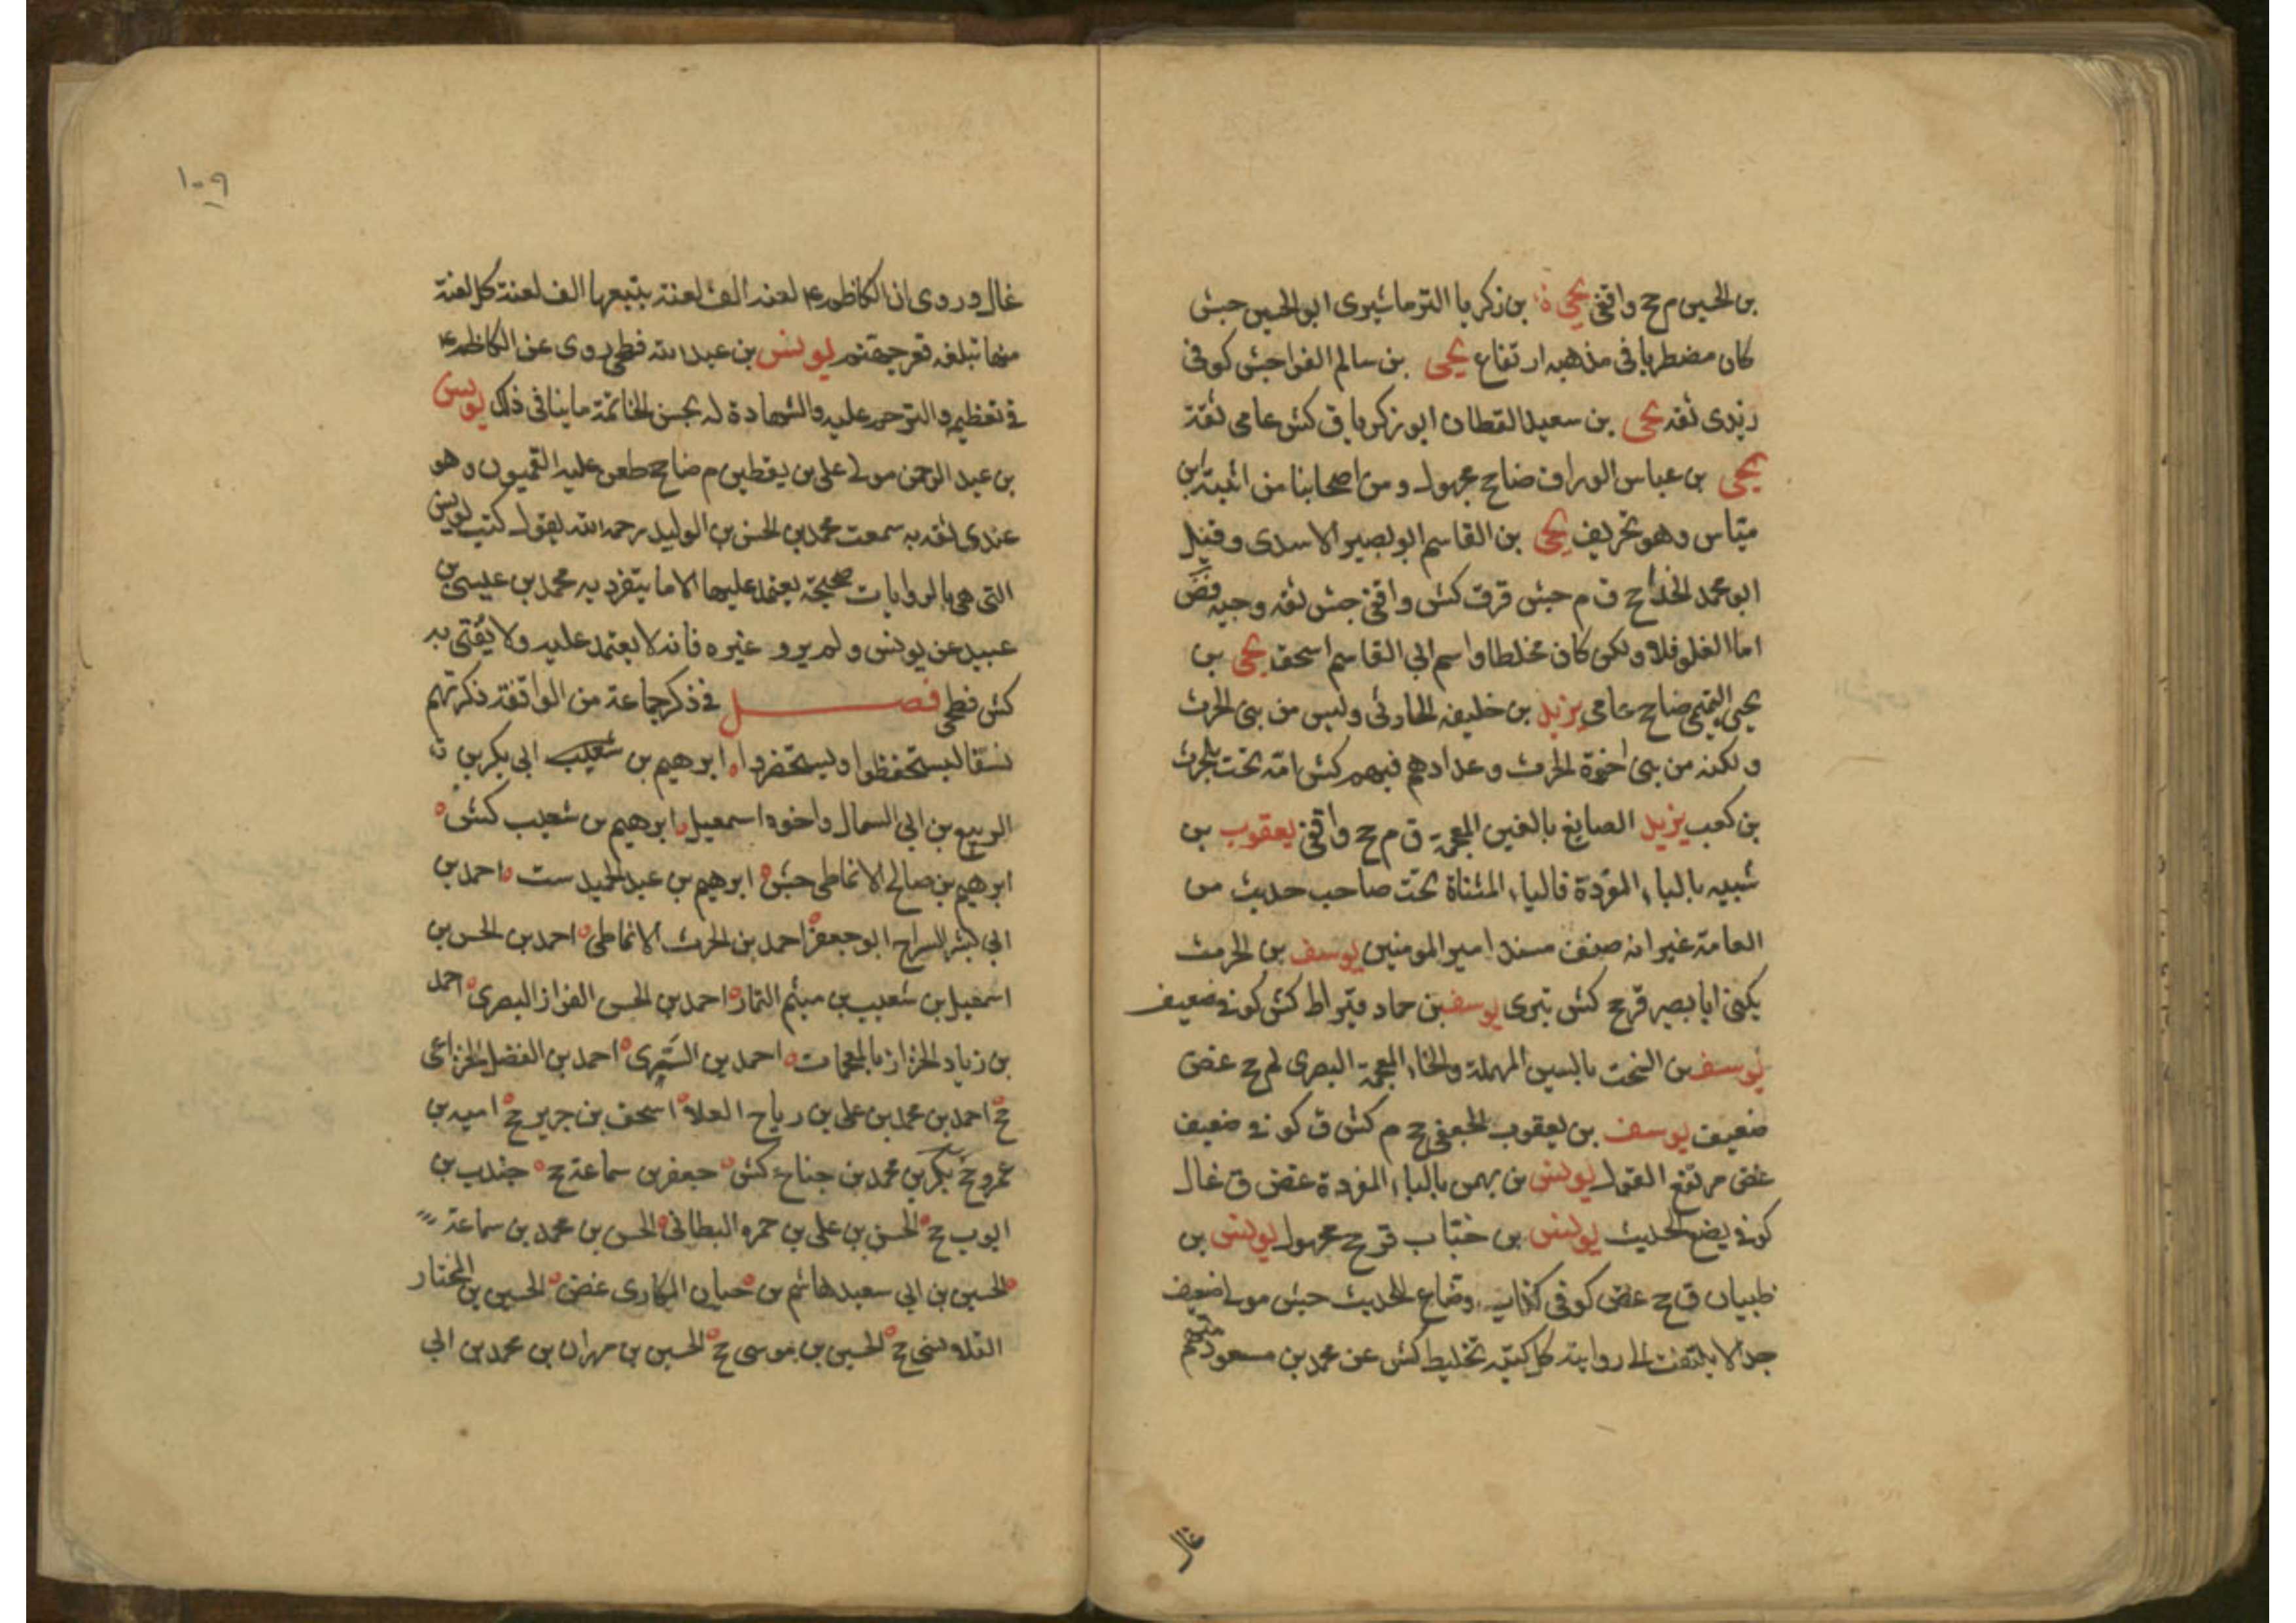 بن الحسين م جح واقفي يحيى بن زكريا الترماشيري ابو الحسين جش
كان مضطربا في مذهبه ارتفاع يحيى بن سالم الفرا جش كوفي
زيدي ثقه يحيى بن سعيد القطان ابو زكريا ق كش عامي ثقة
يحيى بن عباس الوراق ضا جح مجهول ومن اصحابنا من اثبته ابن
وهو تحريف يحيى بن القاسم ابو بصير الاسدي وقيل
ابو محمد الحذاء جح ق م جش قر ق كش واقفي جش ثقه وجيه
اما الغلو فلا ولكن كان مخلطا واسم ابي القاسم اسحق يحيى بن
يحيى التميمي ضا جح عامي يزيد بن خليفه الحارثي وليس من بني الحرث
ولكنه من بني اخوة الحرث وعدادهم فيهم كش امه تحت بلحرث
بن كعب يزيد الصايغ بالغين المعجمة ق م جح واقفي يعقوب بن
شيبه بالباء المفردة فالياء المثناة تحت صاحب حديث من
العامة غير انه صنف مسند امير المومنين يوسف بن الحرث
يكنى ابا بصير قر جح كش بتري يوسف بن حماد كش كوفي ضعيف
يوسف بن السخت بالسين المهملة والخاء المعجمة البصري لم جح غض
ضعيف يوسف بن يعقوب الجعفي جح م كش ق كوفي ضعيف
غض مرتفع القول يونس بن بهمن بالباء المفردة غض ق غال
كوفي يضع الحديث يونس بن خباب قر جح مجهول يونس بن
ظبيان ق جح غض كوفي كذاب وضاع للحديث جش مولى ضعيف
جدا لا يلتفت الى روايته كل كتبه تخليط كش عن محمد بن مسعود متهم
غال
١٠٩
غال وروي ان الكاظم ع لعنه الف لعنة يتبعها الف لعنة كل لعنة
منها تبلغه قعر جهنم يونس بن عبد الله فطحي روى عن الكاظم ع
في تعظيمه والترحم عليه والشهادة له بحسن الخاتمة ما ينافي ذلك يونس
بن عبد الرحمن مولى علي بن يقطين م ضا جح طعن عليه القميون وهو
عندي ثقه به سمعت محمد بن الحسن بن الوليد رحمه الله يقول كتب يونس
التي هي بالروايات صحيحة يعتمد عليها الا ما يتفرد به محمد بن عيسى بن
عبيد عن يونس ولم يرو غيره فانه لا يعتمد عليه ولا يفتى به
كش فطحي فصل في ذكر جماعة من الواقفة ذكرتهم
نسقا ليستحفظوا وليستحضروا ابرهيم بن شعيب ابي بكر بن
الربيع بن ابي السمال واخوه اسمعيل ابرهيم بن شعيب كش
ابرهيم بن صالح الانماطي جش ابرهيم بن عبد الحميد ست احمد بن
ابي بشر السراج ابو جعفر احمد بن الحرث الانماطي احمد بن الحسن بن
اسمعيل بن شعيب بن ميثم التمار احمد بن الحسن القزاز البصري احمد
بن زياد الخزاز بالمعجمات احمد بن السري احمد بن الفضل الخزاعي
جح احمد بن محمد بن علي بن رباح العلا اسحق بن جرير جح اميه بن
عمرو جح بكر بن محمد بن جناح كش جعفر بن سماعة جح جندب بن
ايوب جح الحسن بن علي بن حمزه البطائني الحسن بن محمد بن سماعة
الحسين بن ابي سعيد هاشم بن حيان المكاري غض الحسين بن المختار
القلانسي جح الحسين بن موسى جح الحسين بن مهران بن محمد بن ابي